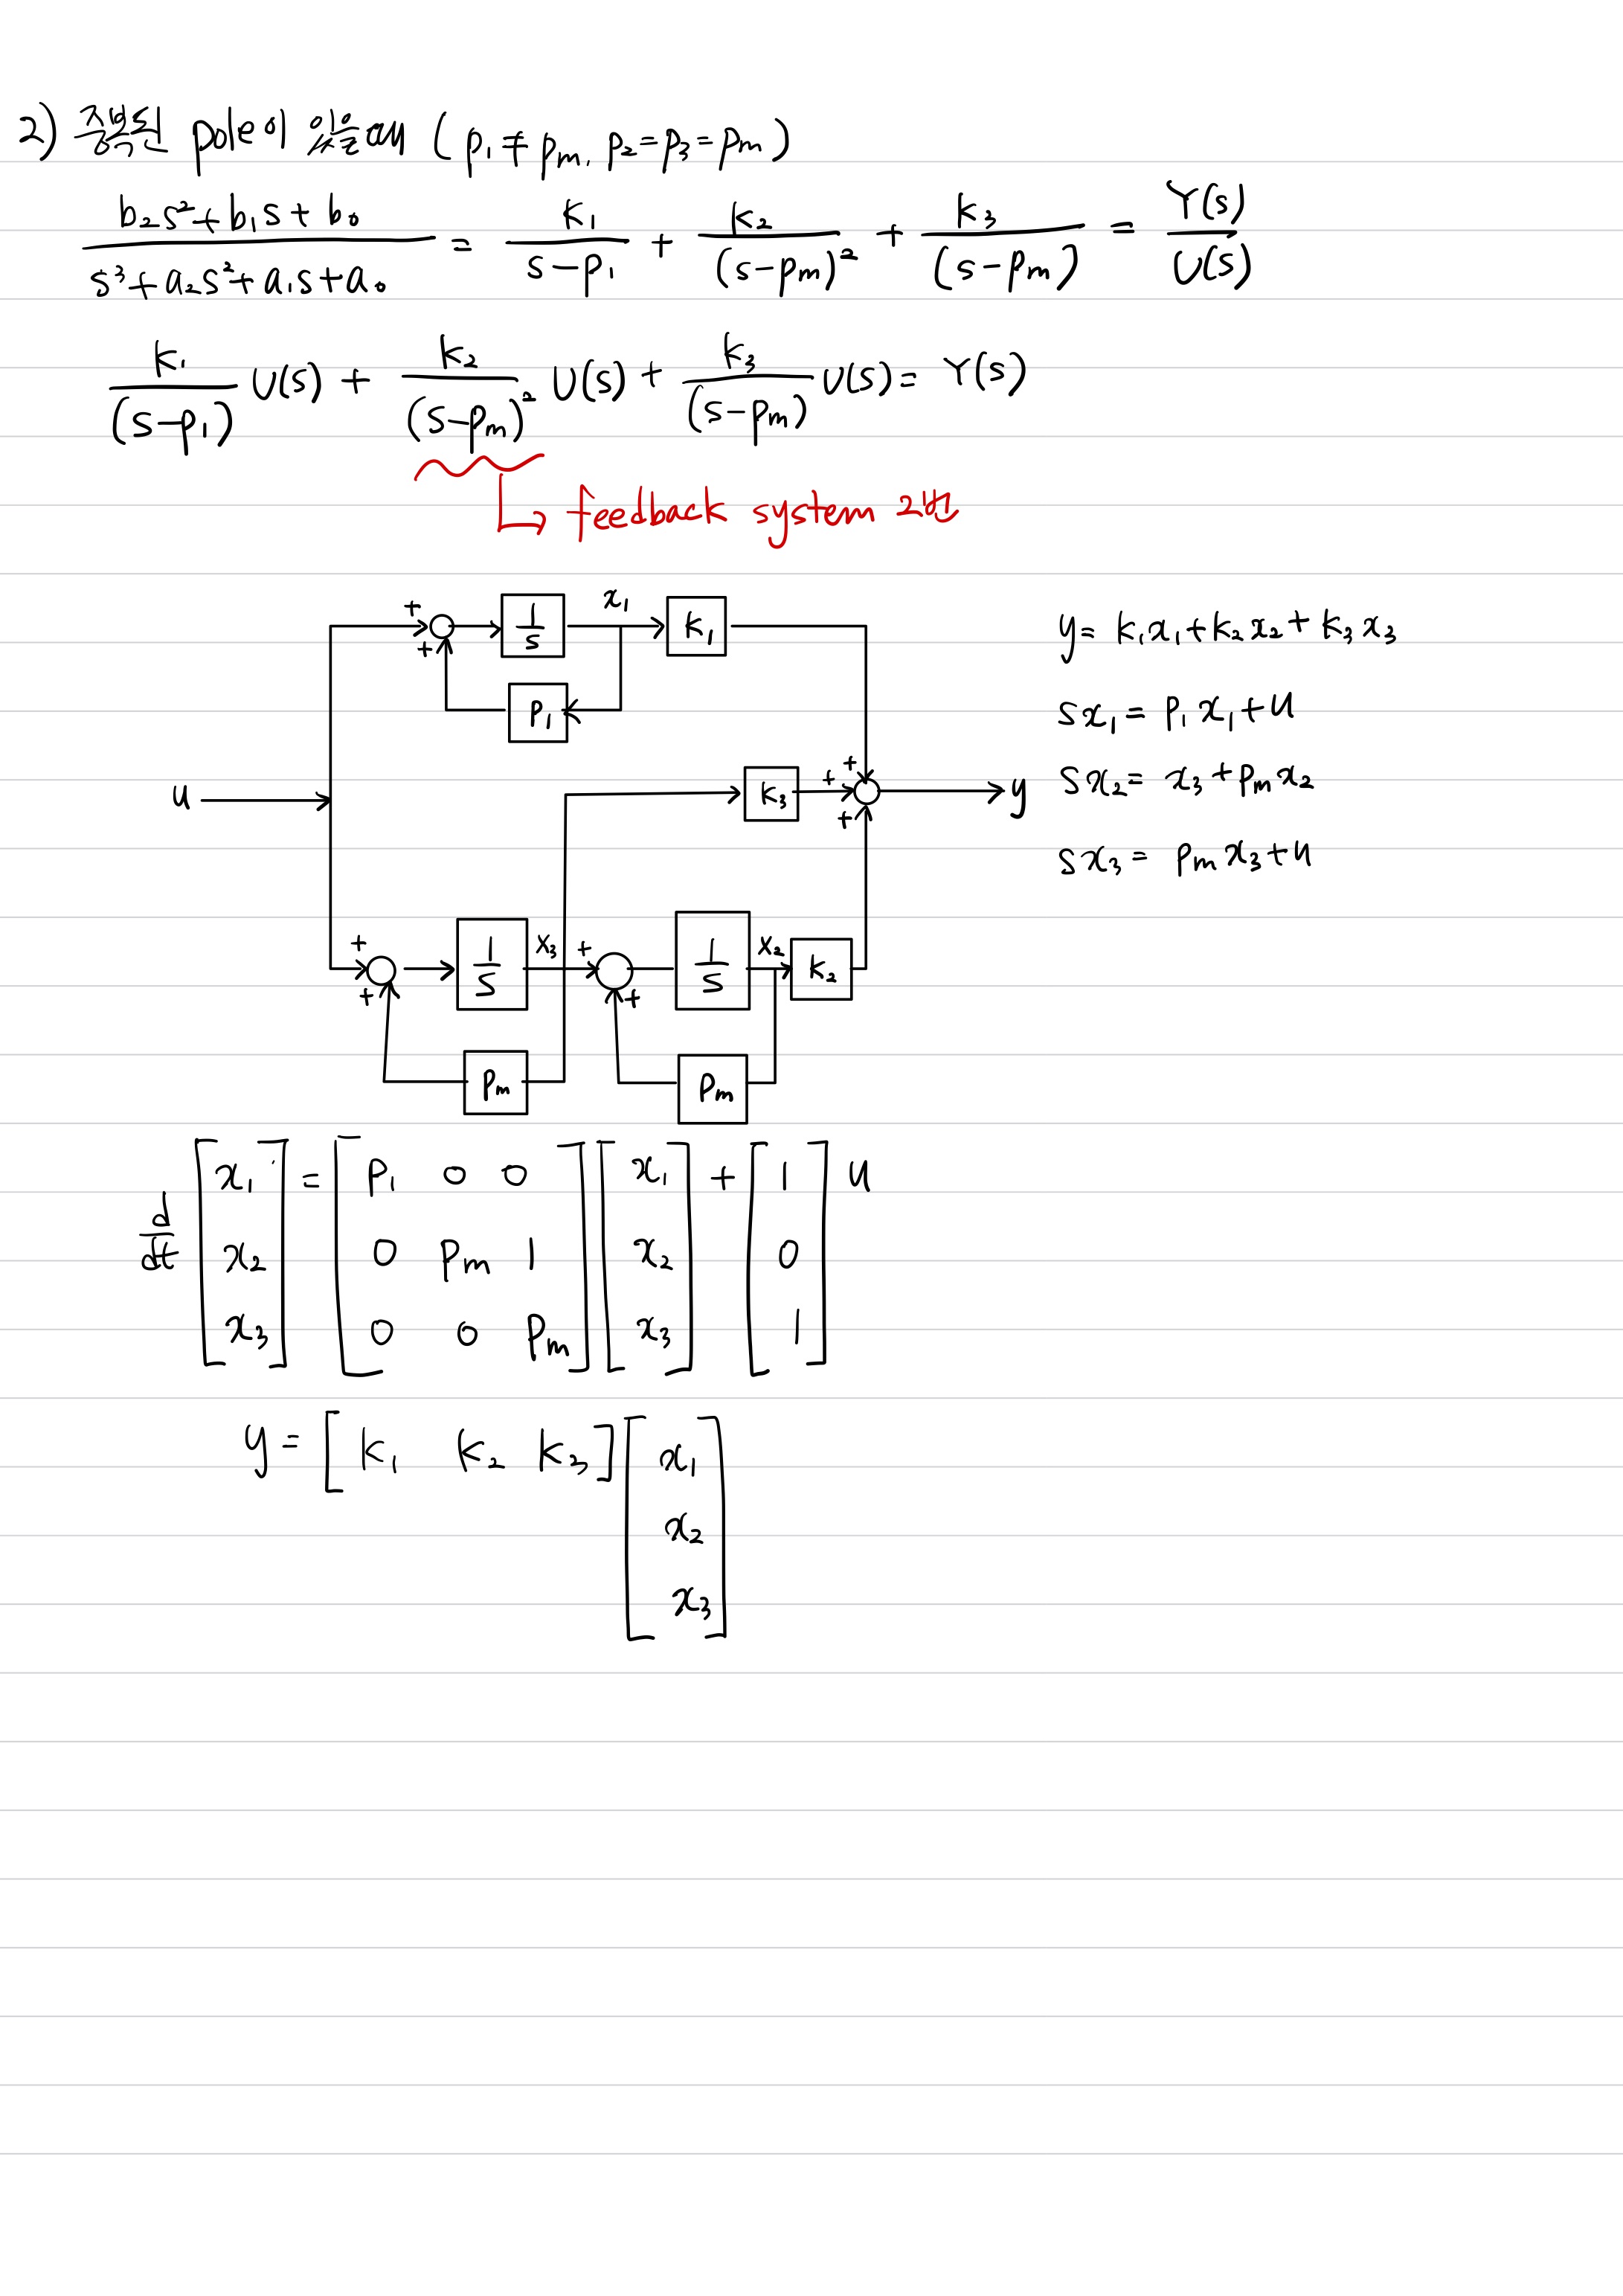 2) 중복된 pole이 있을 때 ( p₁ ≠ pₘ, p₂ = p₃ = pₘ )
(b₂s² + b₁s + b₀) / (s³ + a₂s² + a₁s + a₀) = k₁ / (s - p₁) + k₂ / (s - pₘ)² + k₃ / (s - pₘ) = Y(s) / U(s)
k₁ / (s - p₁) U(s) + k₂ / (s - pₘ)² U(s) + k₃ / (s - pₘ) U(s) = Y(s)
↳ feedback system 2번
+ + 1/s x₁ k₁
p₁
u k₃ + + + y
+ + 1/s x₃ + + 1/s x₂ k₂
pₘ pₘ
y = k₁x₁ + k₂x₂ + k₃x₃
sx₁ = p₁x₁ + u
sx₂ = x₃ + pₘx₂
sx₃ = pₘx₃ + u
d/dt [x₁ x₂ x₃] = [p₁ 0 0; 0 pₘ 1; 0 0 pₘ] [x₁ x₂ x₃] + [1 0 1] u
y = [k₁ k₂ k₃] [x₁ x₂ x₃]